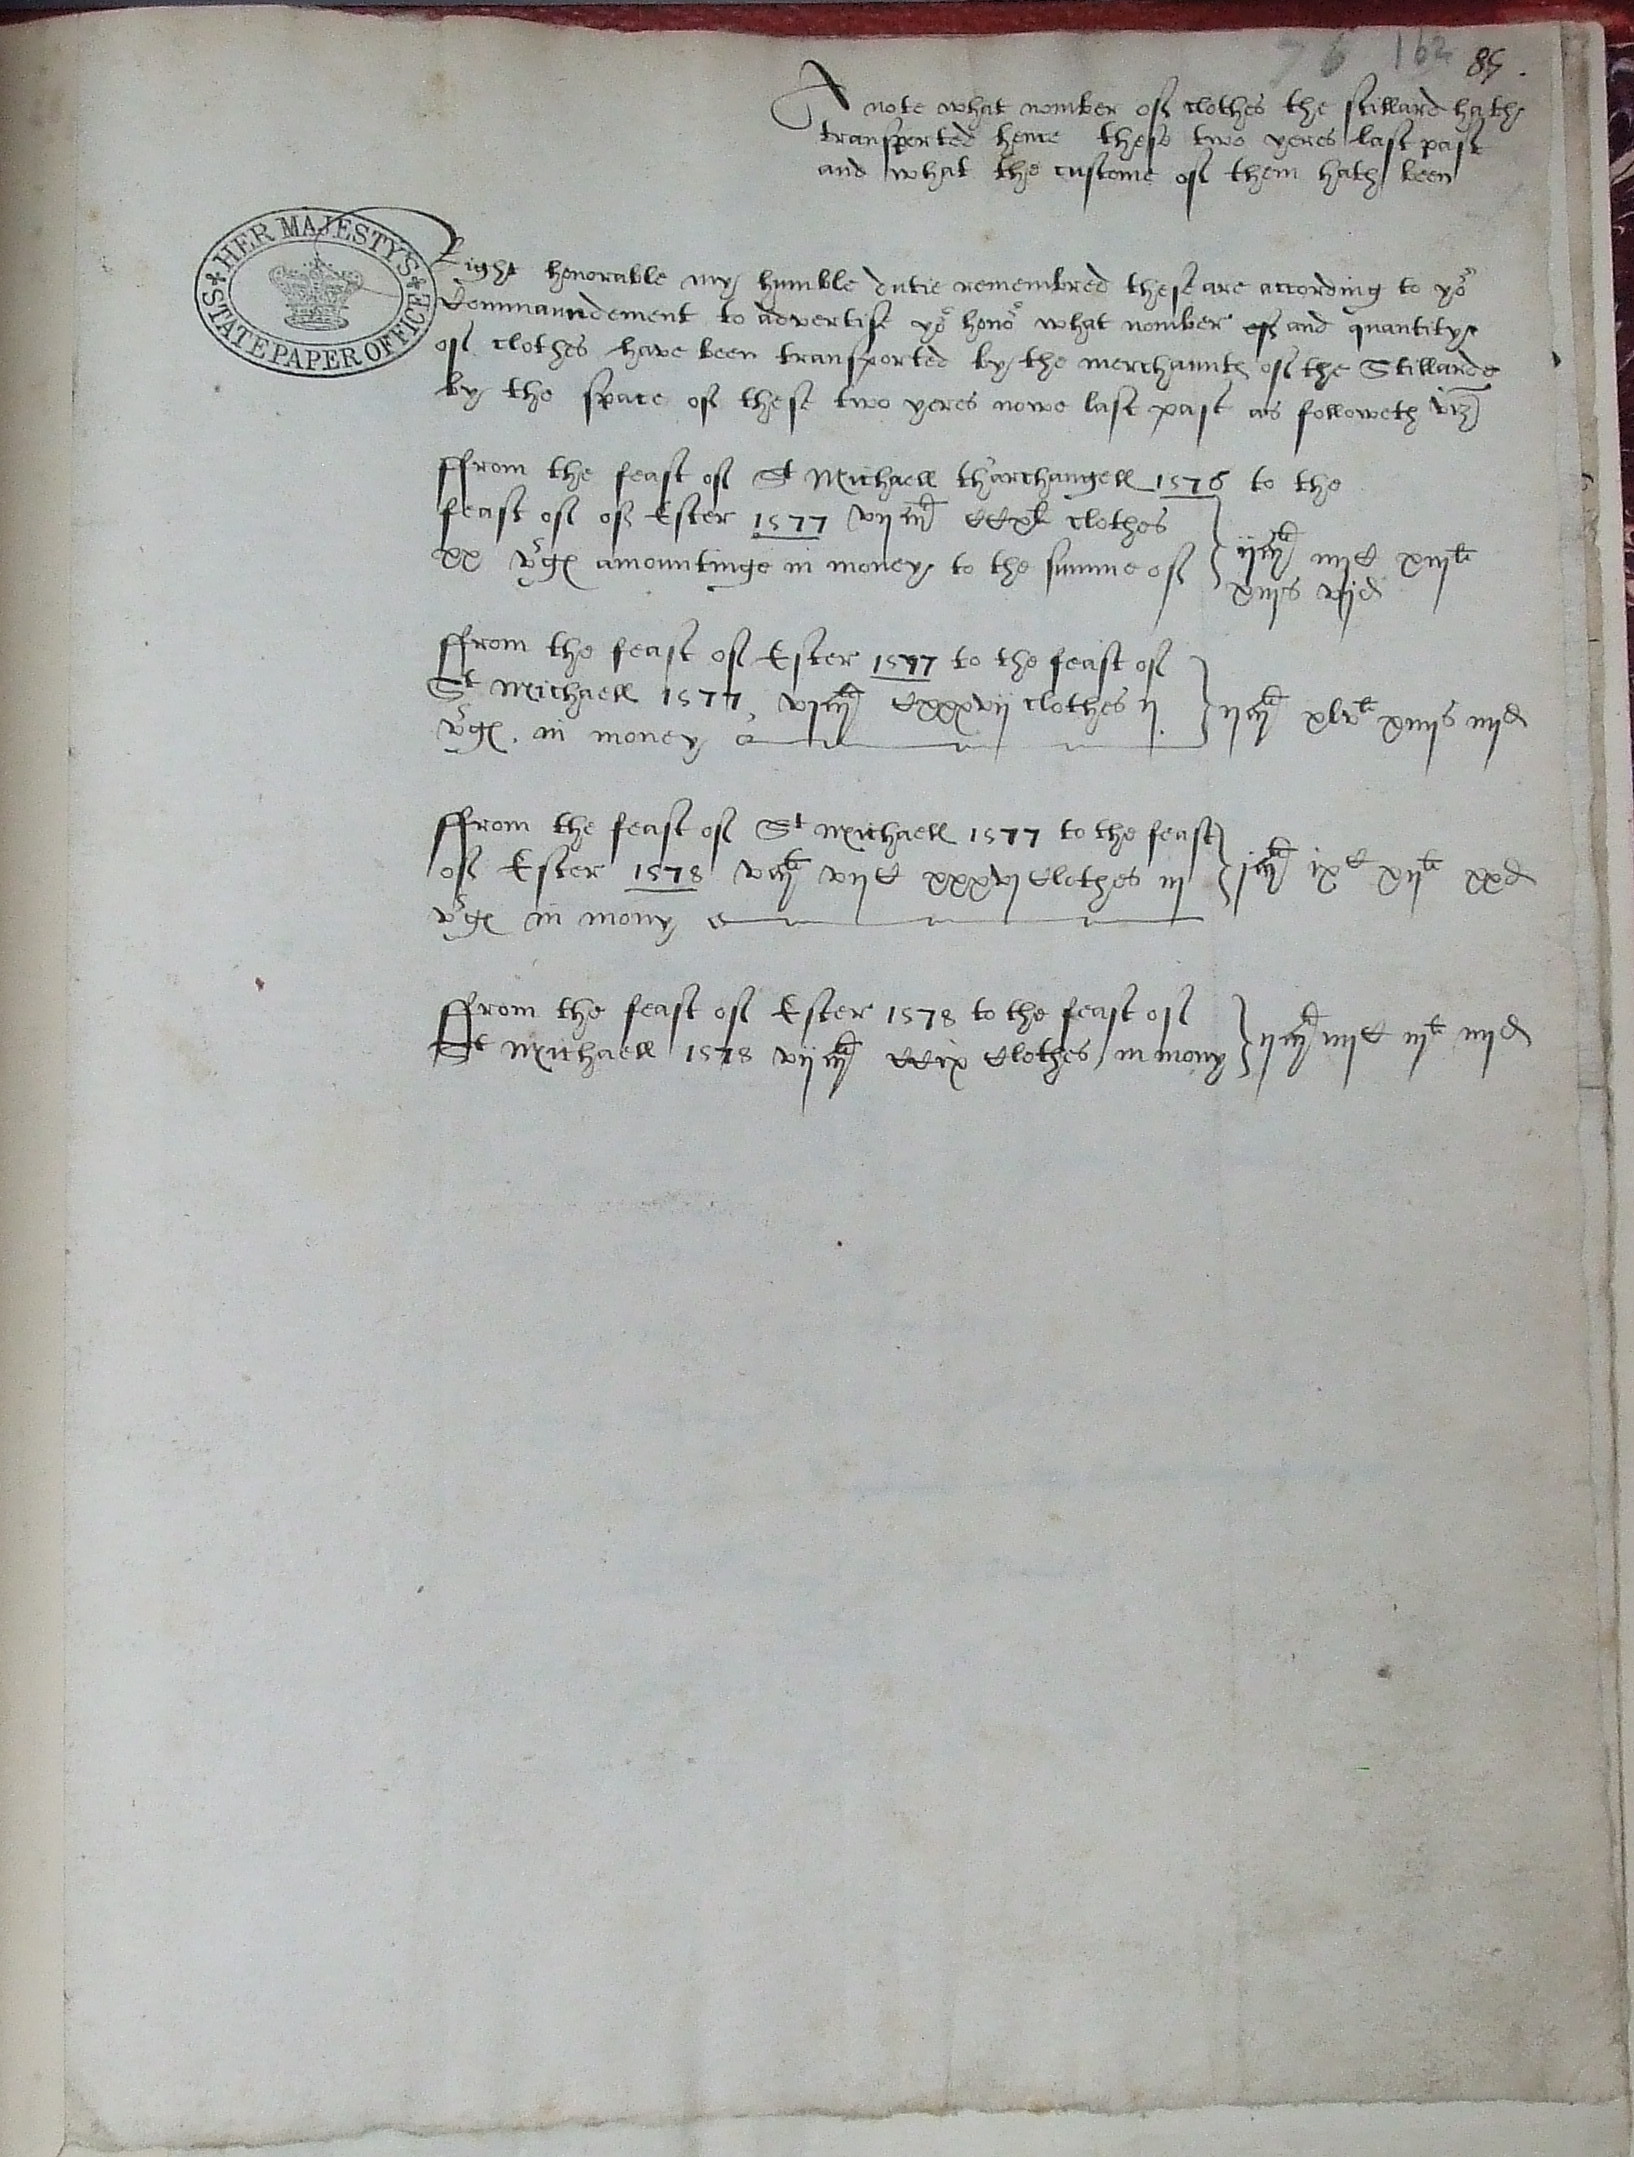 76 162 85.
A note what nomber of clothes the stillard hath
transported hence these two yeres last past
and what the custome of them hath been
HER MAJESTY'S
STATE PAPER OFFICE
Right honorable my humble dutie remembred these are according to yor
Commaundement to advertise yor honor what nomber of and quantity
of clothes have been transported by the merchaunts of the Stillarde
by the space of these two yeres nowe last past as followeth viz
ffrom the feast of St Michaell th'archangell 1576 to the
feast of of Ester 1577 vii m CCxl clothes
xx vgs amountinge in money to the summe of } ii m iiii C xiii li
xiii s vii d
ffrom the feast of Ester 1577 to the feast of
St Michaell 1577, vi m Cxxxvii clothes ii
vgs. in money } ii m xlv li xiiii s iiii d
ffrom the feast of St Michaell 1577 to the feast
of Ester 1578 v m vii C xxxvi Clothes iii } i m ix C xii li xx d
vgs in mony
ffrom the feast of Ester 1578 to the feast of
St Michaell 1578 vii m CCix Clothes in mony } ii m iiii C iii li iiii d